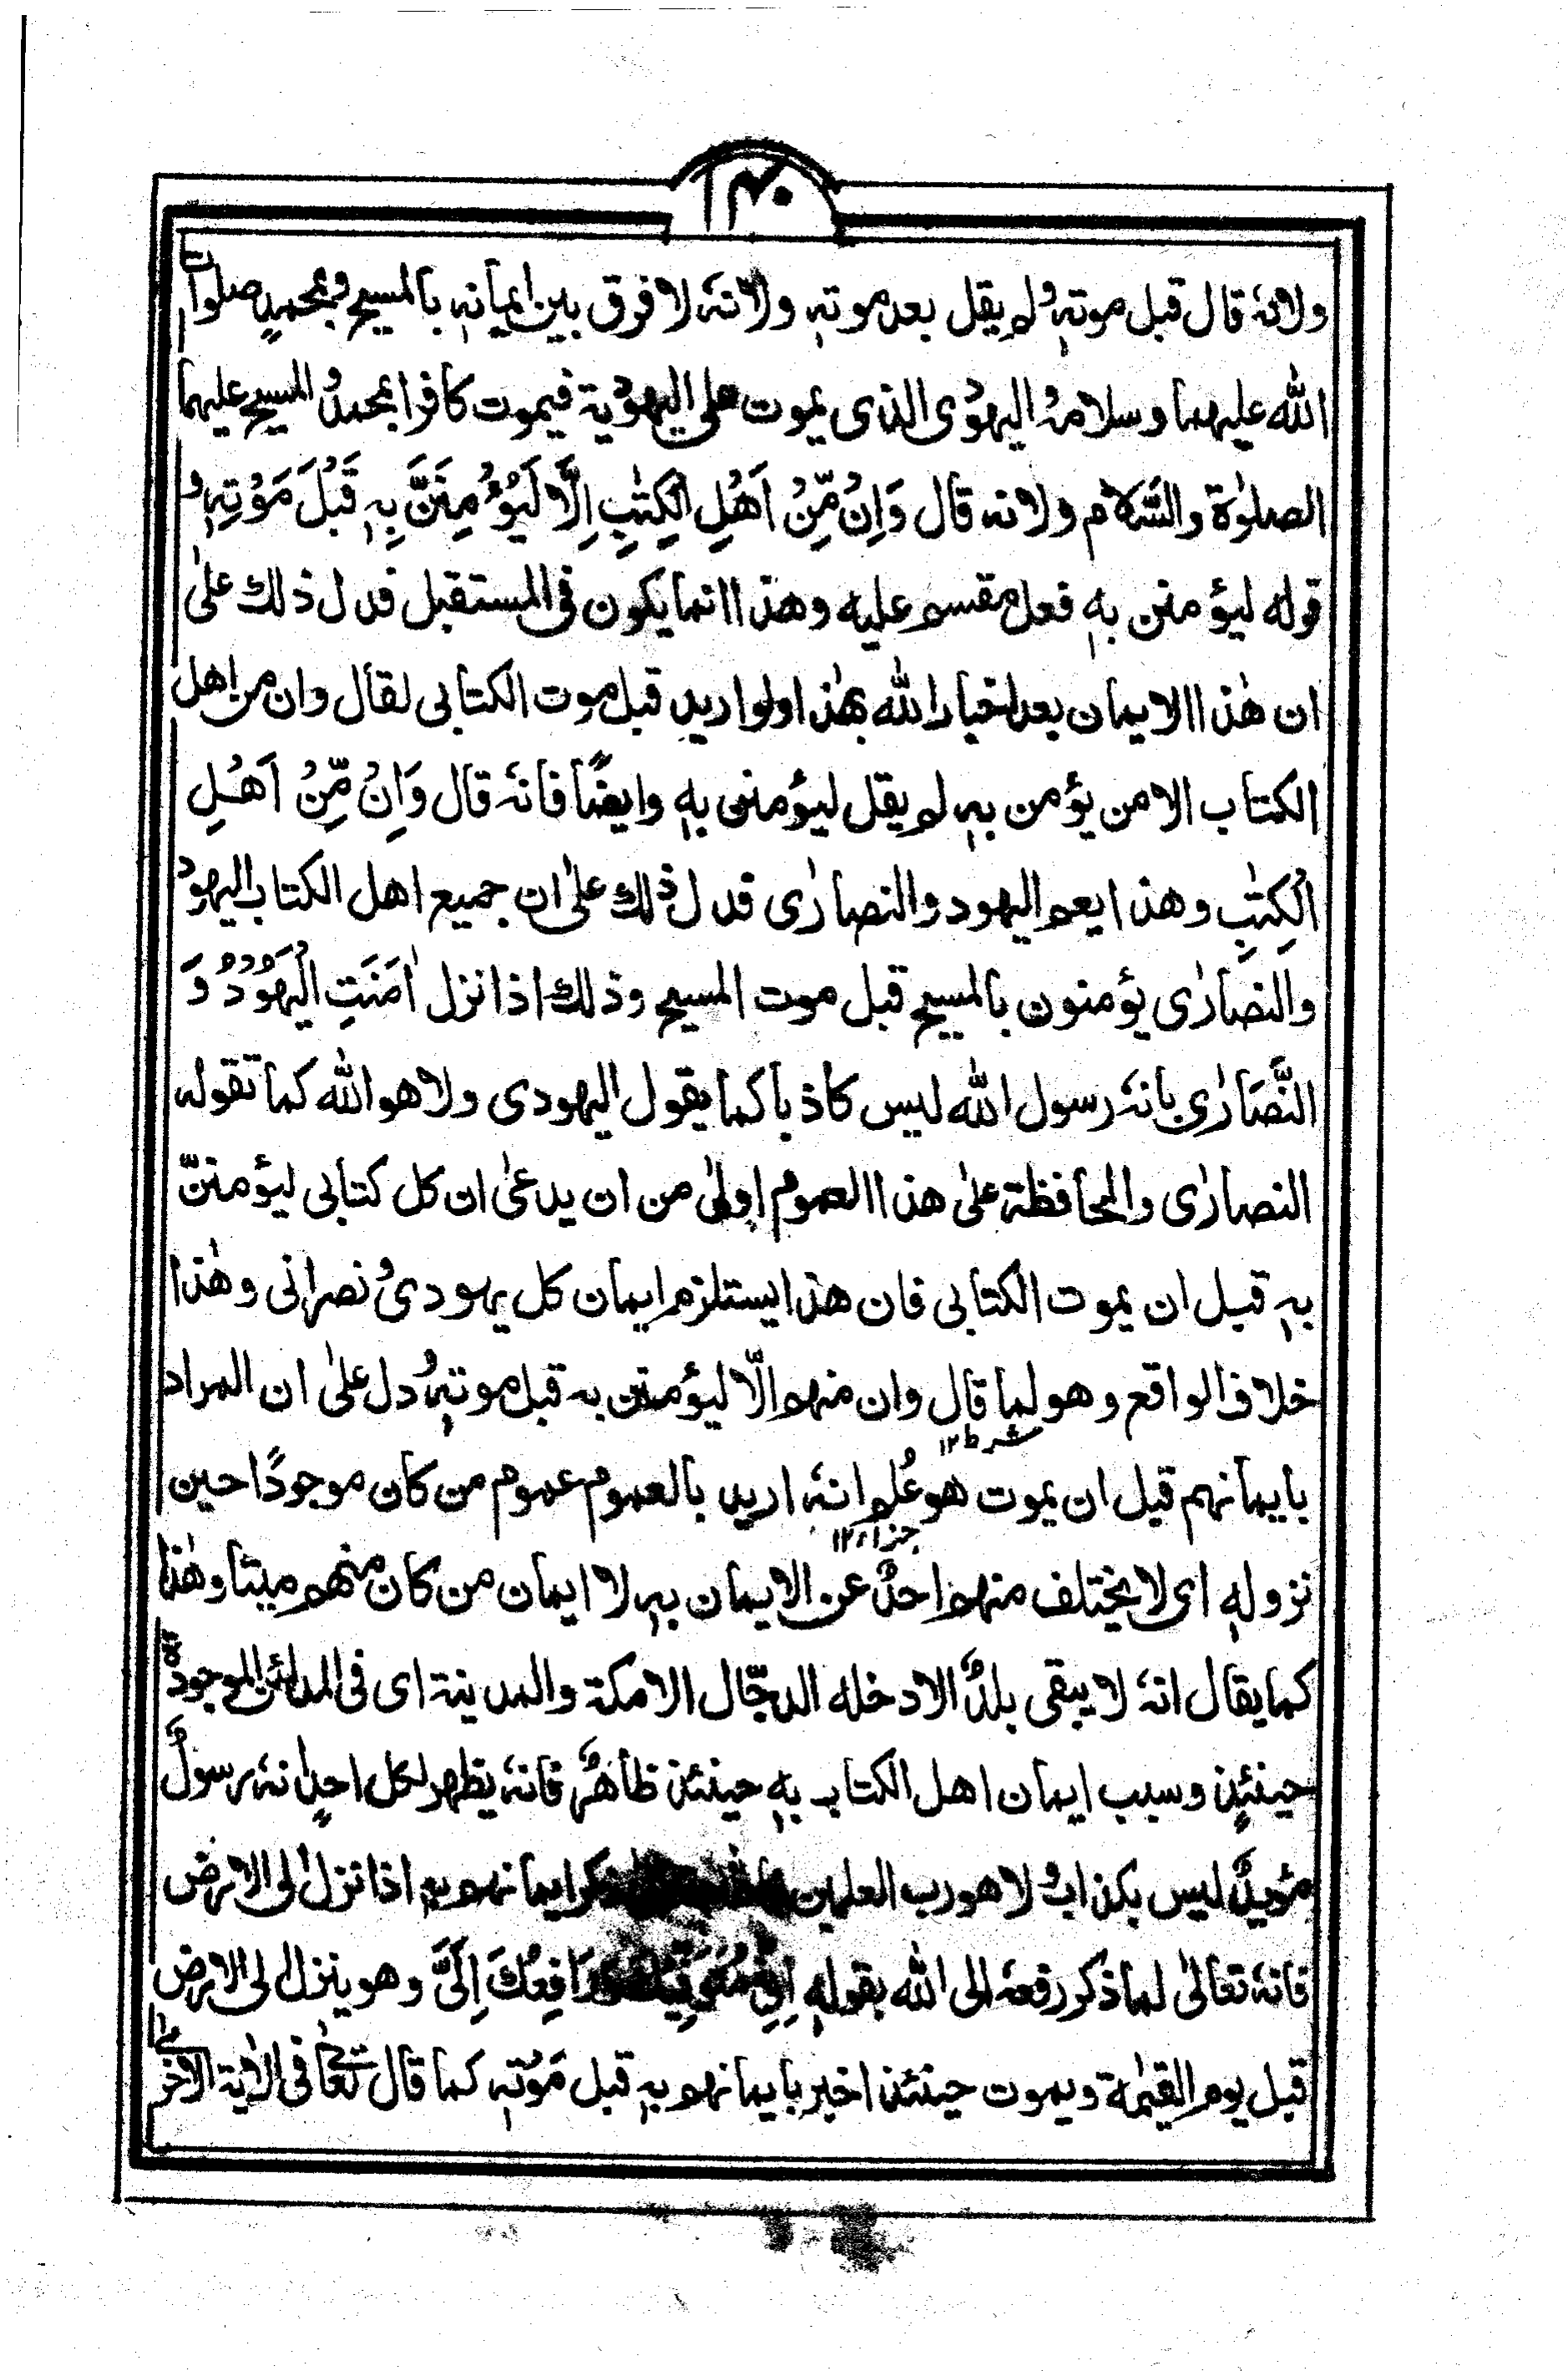 ۱۴۰
ولانه قال قبل موتہٖ ولم يقل بعد موتہٖ ولانهٗ لا فرق بين ايمانہٖ بالمسيح وبمحمدٍ صلوات
الله عليهما وسلامهٗ اليهودى الذى يموت على اليهودية فيموت كافرا بمحمدٍ والمسيح عليهما
الصلوٰة والسّلام ولانه قال وَاِنْ مِّنْ اَهْلِ الْكِتٰبِ اِلَّا لَيُؤْمِنَنَّ بِهٖ قَبْلَ مَوْتِهٖ و
قوله ليؤمنن بہٖ فعل مقسم عليه وهذا انما يكون فى المستقبل فدل ذلك علىٰ
ان هٰذا الايمان بعد اخبار الله بهٰذا ولو اريد قبل موت الكتابى لقال وان من اهل
الكتاب الا من يؤمن بہٖ لم يقل ليؤمنن بہٖ وايضًا فانهٗ قال وَاِنْ مِّنْ اَهْلِ
الْكِتٰبِ وهذا يعم اليهود والنصارٰى فدل ذلك علىٰ ان جميع اهل الكتاب اليهود
والنصارٰى يؤمنون بالمسيح قبل موت المسيح وذلك اذا نزل اٰمَنَتِ الْيَهُوْدُ وَ
النَّصَارٰى بانهٗ رسول الله ليس كاذبا كما يقول اليهودى ولا هو الله كما تقوله
النصارٰى والمحافظة علىٰ هذا العموم اولىٰ من ان يدعىٰ ان كل كتابى ليؤمننّ
بہٖ قبل ان يموت الكتابى فان هذا يستلزم ايمان كل يهودى و نصرانى وهٰذا
خلاف الواقع وهو لما قال وان منهم الّا ليؤمنن به قبل موتہٖ دل علىٰ ان المراد
شرط ۱۲
بايمانهم قبل ان يموت هو عُلم انهٗ اريد بالعموم عموم من كان موجودًا حين
جزاء ۱۲
نزولهٖ اى لا يختلف منهم احدٌ عن الايمان بہٖ لا ايمان من كان منهم ميتا وهٰذا
كما يقال انهٗ لا يبقى بلدٌ الا دخله الدجّال الا مكة والمدينة اى فى المدائن الموجودة
حينئذٍ وسبب ايمان اهل الكتاب بہٖ حينئذ ظاهرٌ فانهٗ يظهر لكل احدٍ انهٗ رسولٌ
مؤيدٌ ليس بكذاب ولا هو رب العلمين ذكر ايمانهم بہٖ اذا نزل الى الارض
فانهٗ تعالىٰ لما ذكر رفعهٗ الى الله بقولهٖ اِنِّىْ مُتَوَفِّيْكَ وَرَافِعُكَ اِلَىَّ وهو ينزل الى الارض
قبل يوم القيٰمة ويموت حينئذ اخبر بايمانهم بہٖ قبل مَوْتہٖ كما قال تعالىٰ فى الاٰية الاخرىٰ